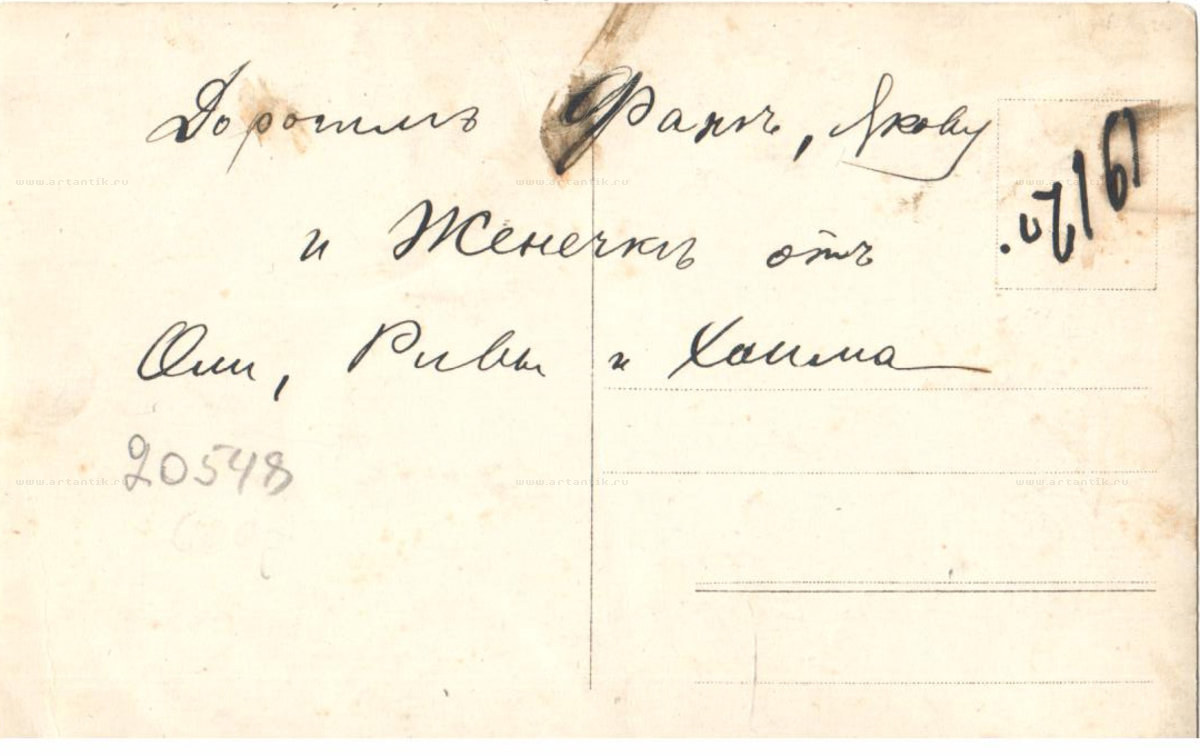 Дорогимъ Фанѣ, Якову
и Женечкѣ отъ
Оли, Ривы и Хаима
20548
www.artantik.ru www.artantik.ru www.artantik.ru
www.artantik.ru www.artantik.ru www.artantik.ru